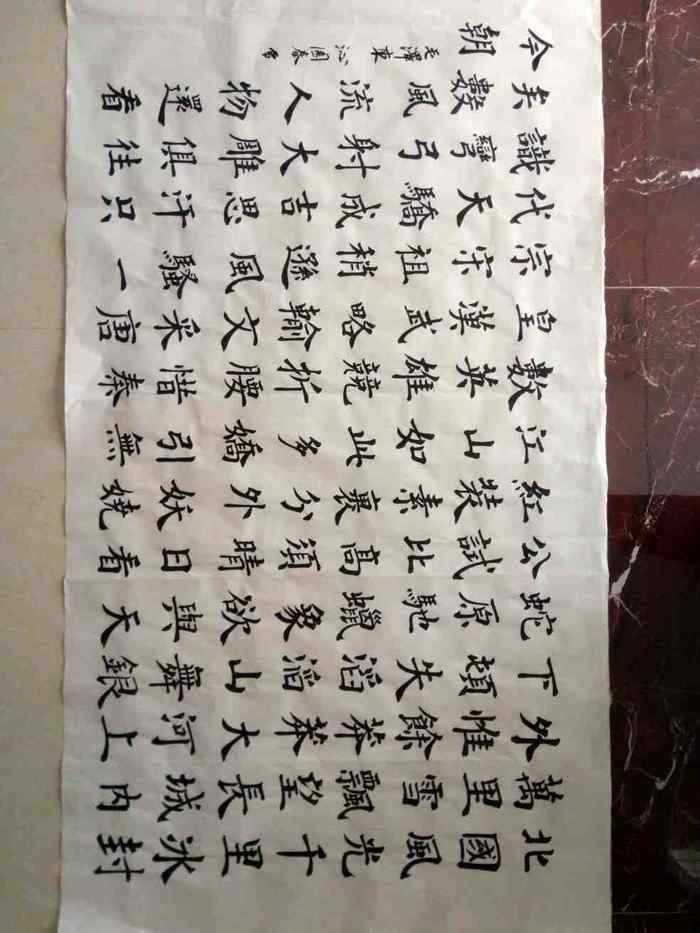 北國風光千里冰封
萬里雪飄望長城內
外惟餘莽莽大河上
下頓失滔滔山舞銀
蛇原馳蠟象欲與天
公試比高須晴日看
紅裝素裹分外妖嬈
江山如此多嬌引無
數英雄競折腰惜秦
皇漢武略輸文采唐
宗宋祖稍遜風騷一
代天驕成吉思汗只
識彎弓射大雕俱往
矣數風流人物還看
今朝
毛澤東 沁園春雪